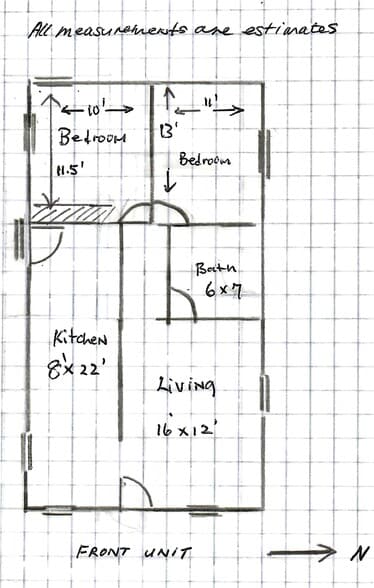 All measurements are estimates
10'
11'
Bedroom
13'
11.5'
Bedroom
Bath
6x7
Kitchen
8'x22'
Living
16'x12'
FRONT UNIT
N